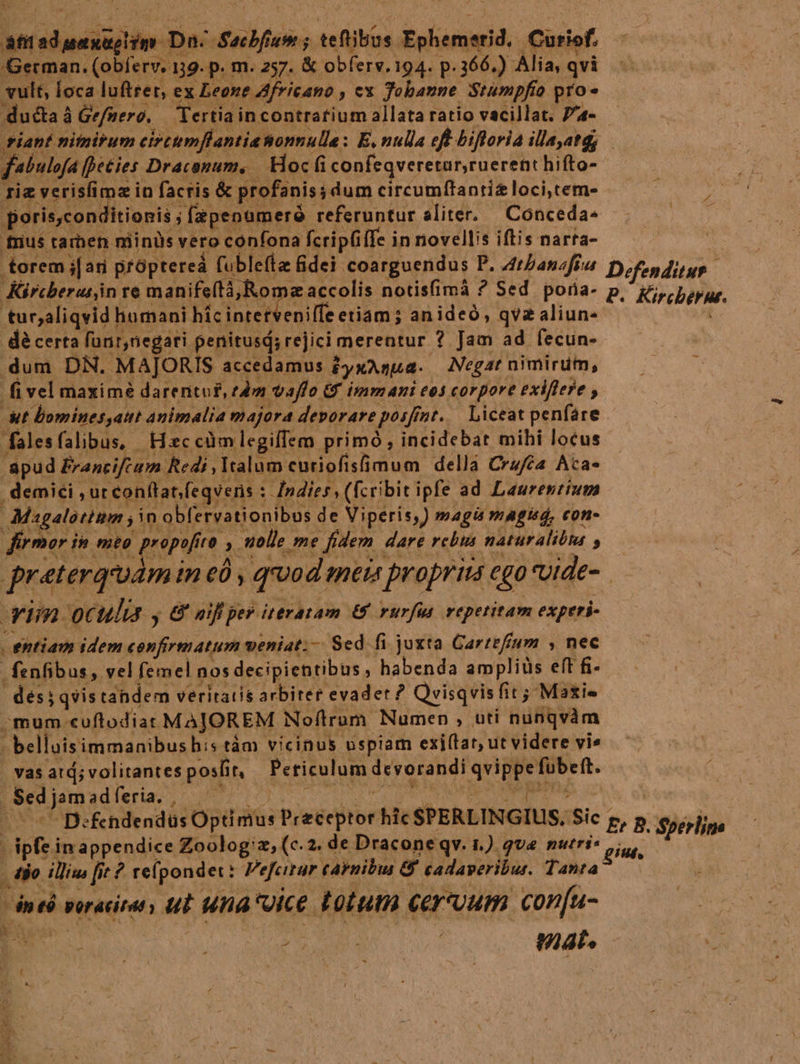 ad Dn. Sachsium; testibus Ephemerid. Curios.
German. (observ. 139. p. m. 257. & observ. 194. p. 366.) Alia, qvi
vult, loca lustret, ex Leone Africano, ex Johanne Stumpfio pro-
ducta à Gesnero. Tertia in contrarium allata ratio vacillat. Va-
riant nimirum circumstantiæ nonnullæ: E. nulla est historia illa, atq;
fabulosa species Draconum. Hoc si conseqveretur, ruerent histo-
riæ verisfimæ in sacris & profanis; dum circumstantiæ loci, tem-
poris, conditionis; sæpenumerò referuntur aliter. Conceda-
mus tamen minùs vero consona scripsisse in novellis istis narra-
torem; an proptereà sublestæ fidei coarguendus P. Athanasius
Kircherus, in re manifestâ, Romæ accolis notisfimâ? Sed pona-
tur, aliqvid humani hîc intervenisse etiam; an ideò, qvæ aliun-
dè certa sunt, negari penitusq; rejici merentur? Jam ad secun-
dum DN. MAJORIS accedamus ἔγκλημα. Negat nimirum,
si vel maximè darentur, tàm vasto & immani eos corpore existere,
ut homines, aut animalia majora devorare posfint. Liceat pensare
sales salibus. Hæc cùm legissem primò, incidebat mihi locus
apud Francifcum Redi, Italum curiosisfimum della Crusca Aca-
demici, ut constat, seqvens: Indies, (scribit ipse ad Laurentium
Magalottum, in observationibus de Viperis,) magis magisq; con-
firmor in meo proposito, nolle me fidem dare rebus naturalibus,
præterqvàm in eô, qvod meis propriis ego vide-
rim oculis, & nisi per iteratam & rursus repetitam experi-
entiam idem confirmatum veniat. Sed si juxta Cartesium, nec
sensibus, vel semel nos decipientibus, habenda ampliùs est fi-
des; qvis tandem veritatis arbiter evadet? Qvisqvis fit; Maxi-
mum custodiat MAJOREM Nostrum Numen, uti nunqvàm
belluis immanibus his tàm vicinus uspiam existat, ut videre vi-
vas atq; volitantes posfit. Periculum devorandi qvippe subest.
Sed jam ad seria.
Defendendus Optimus Præceptor hîc SPERLINGIUS. Sic
ipse in appendice Zoologiæ, (c. 2. de Dracone qv. 1.) qvæ nutri-
tio illius fit? respondet: Vescitur carnibus & cadaveribus. Tanta
in eô voracitas, ut una vice totum cervum consu-
mat.
Defenditur
P. Kircherus.
Et B. Sperlin-
gius.